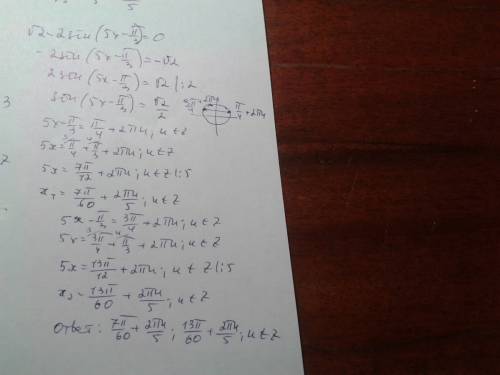 5
√2-2sin(5x-π/3)=0
-2sin(5x-π/3)=-√2
2sin(5x-π/3)=√2 |:2
3
sin(5x-π/3)=√2/2
3π/4+2πn π/4+2πn
5x-π/3=π/4+2πn, n∈Z
5x=π/4+π/3+2πn, n∈Z
5x=7π/12+2πn, n∈Z |:5
x₁=7π/60+2πn/5, n∈Z
5x-π/3=3π/4+2πn, n∈Z
5x=3π/4+π/3+2πn, n∈Z
5x=13π/12+2πn, n∈Z |:5
x₂=13π/60+2πn/5, n∈Z
Ответ: 7π/60+2πn/5; 13π/60+2πn/5, n∈Z